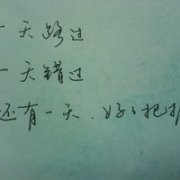 一天路过
一天错过
还有一天、好々把